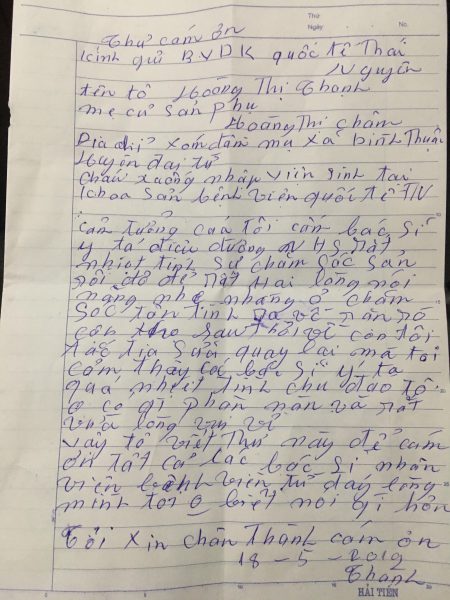 Thứ
Ngày
No.
Thư cảm ơn
Kính gửi BVDK quốc tế Thái
Nguyên
tên tô Hoàng Thị Thanh
mẹ củ sản phụ
Hoàng Thị chăm
Địa chỉ xóm dân mụ xã bình Thuận
Huyện đại từ
cháu xuống nhập viện sinh tại
khoa sản bệnh viện quốc tế TN
cảm tưởng của tôi cảm bác sĩ
y tá điều dưỡng NHS rất
nhiệt tình sự chăm sóc sản
nói rất Hai lòng nói
năng nhẹ nhàng ở chăm
sóc tận tình
con tho sau thời về con tôi
tắc tia sữa quay lại mà tôi
cảm thấy các bác sĩ y tá
quá nhiệt tình chu đáo tô
o có gì phàn nàn và rất
vừa lòng vui vẻ
vậy tô viết thư này để cảm
ơn tất cả các bác sĩ nhân
viên bệnh viên từ đáy lòng
mình tôi o biết nói gì hơn
Tôi xin chân thành cảm ơn
18-5-2019
Thanh
HẢI TIẾN